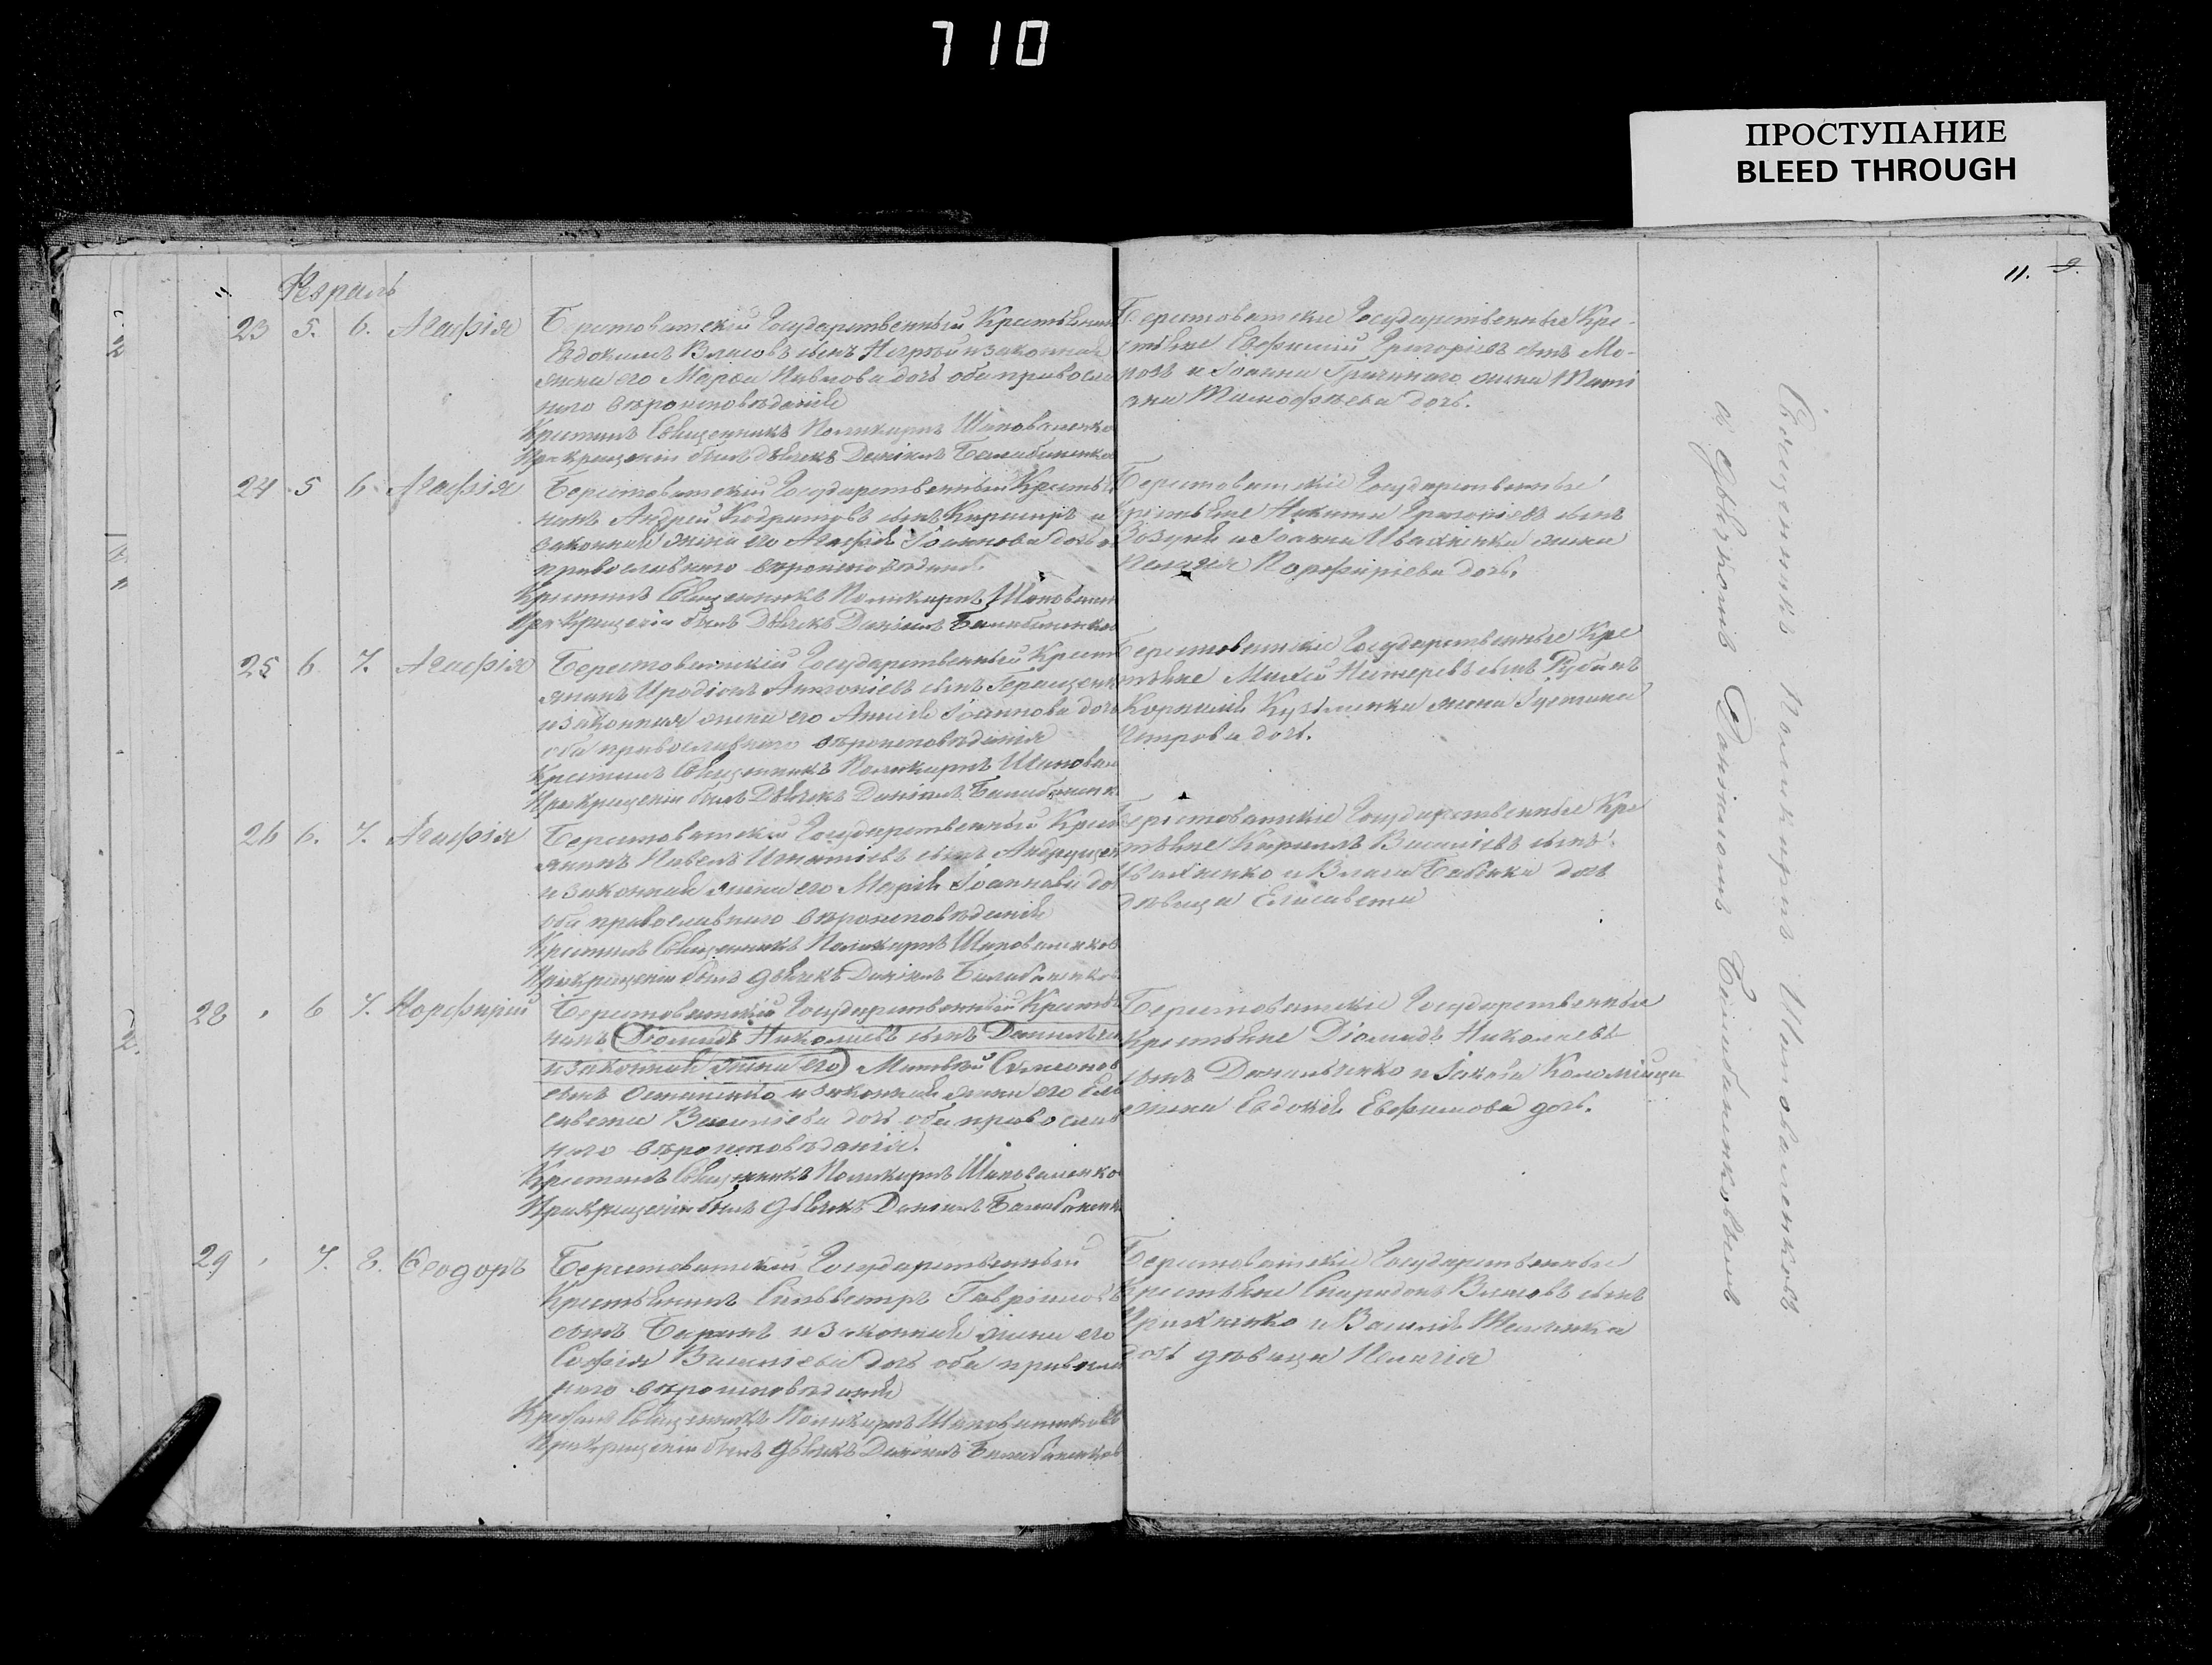 710
ПРОСТУПАНИЕ
BLEED THROUGH
11. 9.
Февраль
23 5. 6. Агафія Берестоватскій Государственный Крестьянин
Евдокимъ Власовъ сынъ и законная
жена его Марѳа Павлова дочь оба православ
наго вѣроисповѣданія
Крестилъ Священникъ Поликарпъ Шаповаленко
При крещеніи былъ Дьячекъ Даніилъ Балабаненко
Берестоватскіе Государственные Кре-
стьяне Евфимій Григоріевъ сынъ Мо-
розъ и Іоанна жена
Тимофѣева дочь.
24 5 6 Агафія Берестоватскій Государственный Крестья
нинъ Андрей Кодратовъ сынъ и
законная жена его Агафія Іоаннова дочь
православнаго вѣроисповѣданія
Крестилъ Священникъ Поликарпъ Шаповален
При Крещеніи былъ Дьячекъ Даніилъ Балабаненко
Берестоватскіе Государственные
Крестьяне Никита Григоріевъ сынъ
Зозуля и Іоанна Ивахненка жена
Пелагія Порфиріева дочь.
25 6 7. Агафія Берестоватскій Государственный Кресть
янинъ Иродіонъ Антоніевъ сынъ Геращен
и законная жена его Іоаннова дочь
оба православнаго вѣроисповѣданія
Крестилъ Священникъ Поликарпъ Шаповал
При крещеніи былъ Дьячекъ Даніилъ Балабаненк
Берестоватскіе Государственные Кре
стьяне сынъ
Корнилія Кузьменка жена Іустина
Петрова дочь.
26 6. 7. Агафія Берестоватскій Государственный Крест
янинъ Павелъ Игнатіевъ сынъ Андрущен
и законная жена его Марія Іоаннова доч
оба православнаго вѣроисповѣданія
Крестилъ Священникъ Поликарпъ Шаповаленков
При крещеніи былъ дьячекъ Даніилъ Балабаненков
Берестоватскіе Государственные Кре
стьяне Кириллъ Василіевъ сынъ
Ивахненко и Власа Бабенка дочь
дѣвица Елисавета
28 6 7. Порфирій Берестоватскій Государственный Крестья
нинъ (Діомидъ Николаевъ сынъ Данильчен
и законная жена его) Матвѣй Симеонов
сынъ Остапенко и законная жена его Ели
савета Василіева дочь оба православ
наго вѣроисповѣданія.
Крестилъ Священникъ Поликарпъ Шаповаленко
При крещеніи былъ дьячекъ Даніилъ Балабаненк
Берестоватскіе Государственные
Крестьяне Діомидъ Николаевъ
сынъ Данильченко и Іакова Коломійца
жена Евдокія Евфимова дочь.
29 7. 8. Ѳеодоръ Берестоватскій Государственный
Крестьянинъ Сильвестръ Гавріиловъ
сынъ и законная жена его
Софія Василіева дочь оба православ
наго вѣроисповѣданія
Крестилъ Священникъ Поликарпъ Шаповаленков
При крещеніи былъ дьячекъ Даніилъ Балабаненков
Берестоватскіе Государственные
Крестьяне Спиридонъ Власовъ сынъ
и Василія
дочь дѣвица Пелагія
Священникъ Поликарпъ Шаповаленковъ
съ дьячкомъ Даніиломъ Балабаненковымъ